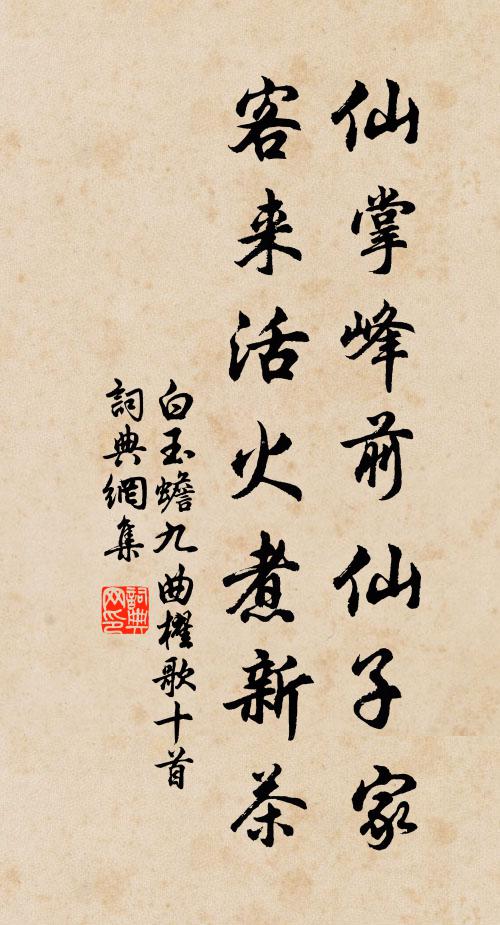 仙掌峰前仙子家
客来活火煮新茶
白玉蟾九曲櫂歌十首
詞典網集
詞典
网印